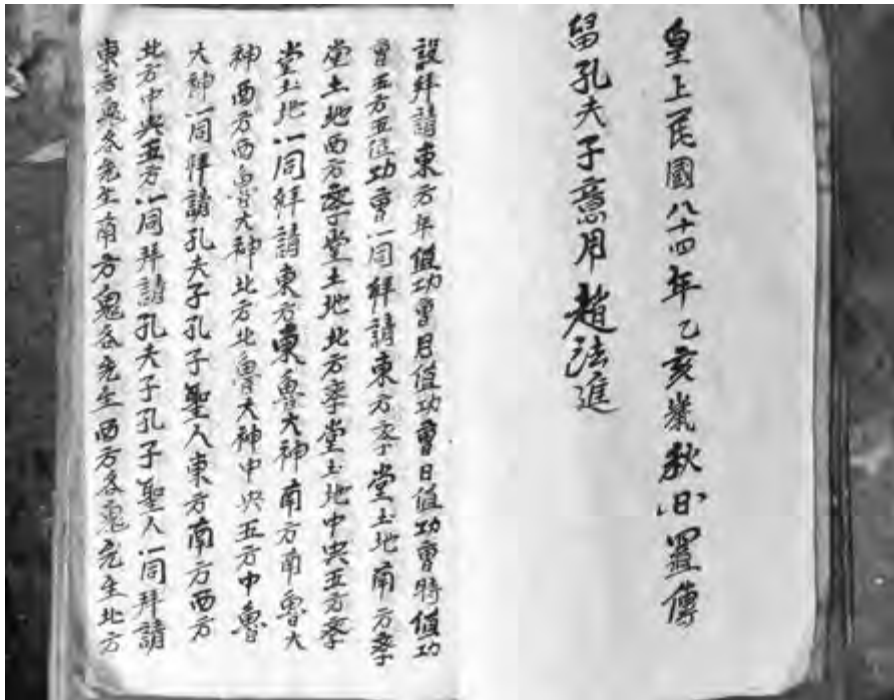 皇上民國八十四年乙亥歲秋日置傳
留孔夫子意用趙法進
設拜請東方年值功曹月值功曹日值功曹時值功
曹五方五位功曹一同拜請東方李堂土地南方李
堂土地西方李堂土地北方李堂土地中央五方李
堂土地一同拜請東方東魯大神南方南魯大
神西方西魯大神北方北魯大神中央五方中魯
大神一同拜請孔夫子孔子聖人東方南方西方
北方中央五方一同拜請孔夫子孔子聖人一同拜請
東方鬼谷先生南方鬼谷先生西方谷鬼先生北方